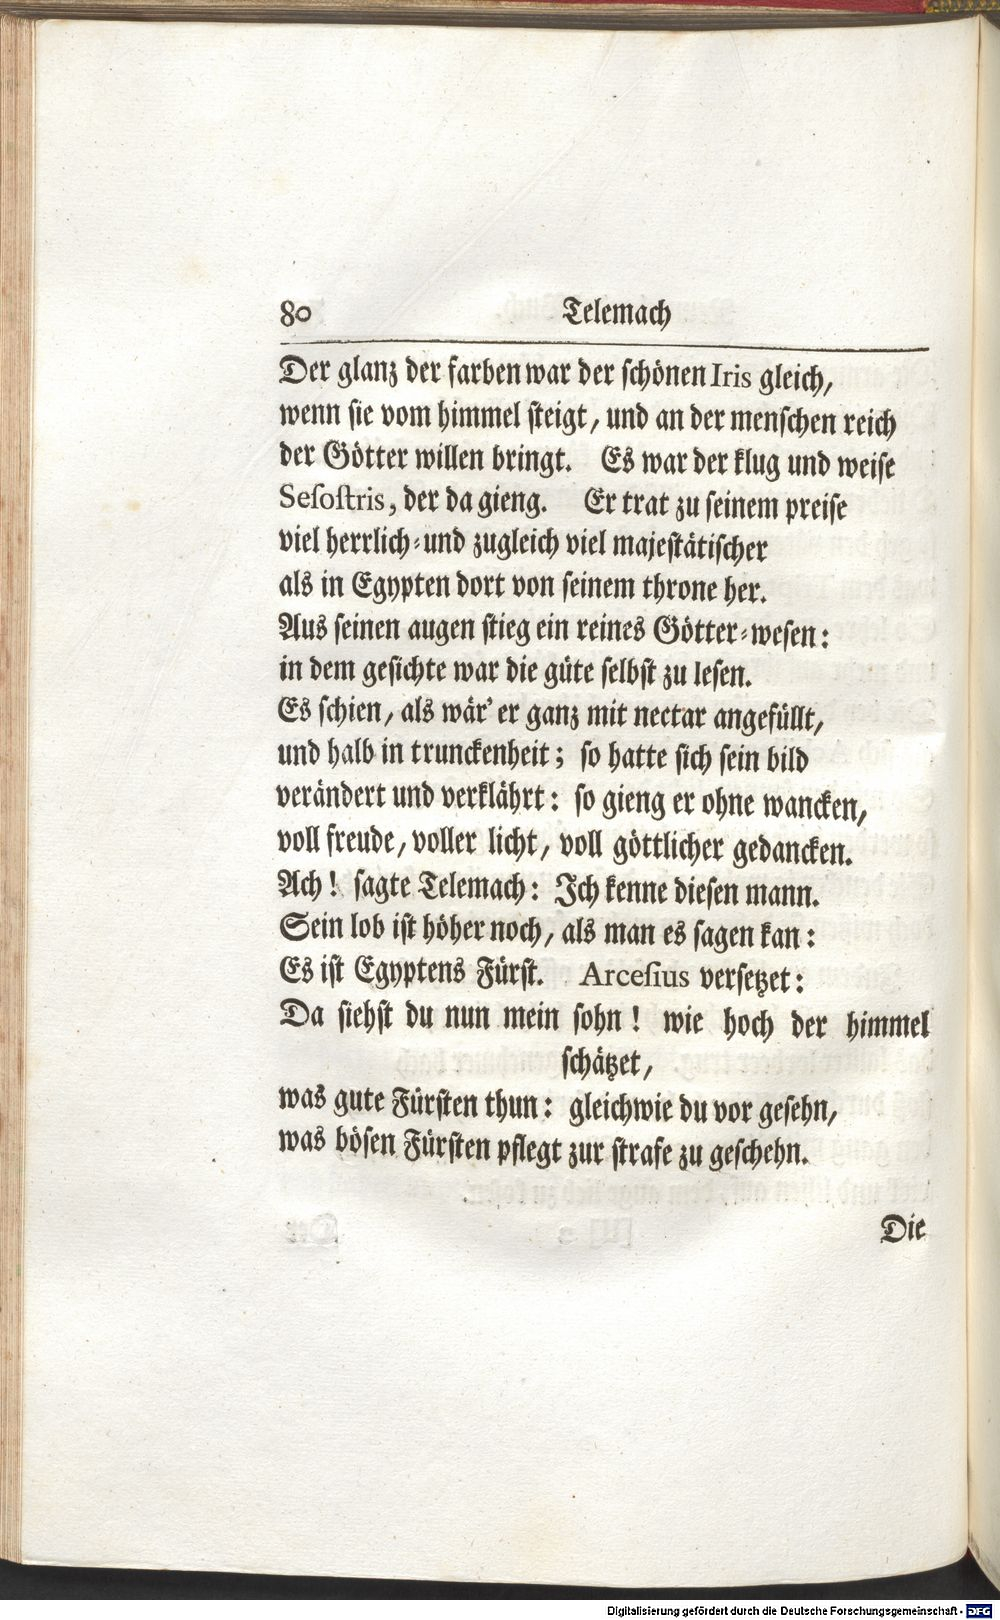 80 Telemach
Der glanz der farben war der schönen Iris gleich,
wenn sie vom himmel steigt, und an der menschen reich
der Götter willen bringt. Es war der klug und weise
Sesostris, der da gieng. Er trat zu seinem preise
viel herrlich- und zugleich viel majestätischer
als in Egypten dort von seinem throne her.
Aus seinen augen stieg ein reines Götter-wesen:
in dem gesichte war die güte selbst zu lesen.
Es schien, als wär' er ganz mit nectar angefüllt,
und halb in trunckenheit; so hatte sich sein bild
verändert und verklährt: so gieng er ohne wancken,
voll freude, voller licht, voll göttlicher gedancken.
Ach! sagte Telemach: Ich kenne diesen mann.
Sein lob ist höher noch, als man es sagen kan:
Es ist Egyptens Fürst. Arcesius versetzet:
Da siehst du nun mein sohn! wie hoch der himmel
schätzet,
was gute Fürsten thun: gleichwie du vor gesehn,
was bösen Fürsten pflegt zur strafe zu geschehn.
Die
Digitalisierung gefördert durch die Deutsche Forschungsgemeinschaft - DFG